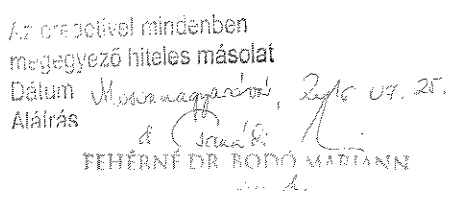 Az eredetivel mindenben
megegyező hiteles másolat
Dátum Mosonmagyaróvár, 2016 07. 25.
Aláírás
FEHÉRNÉ DR. BODÓ MARIANN